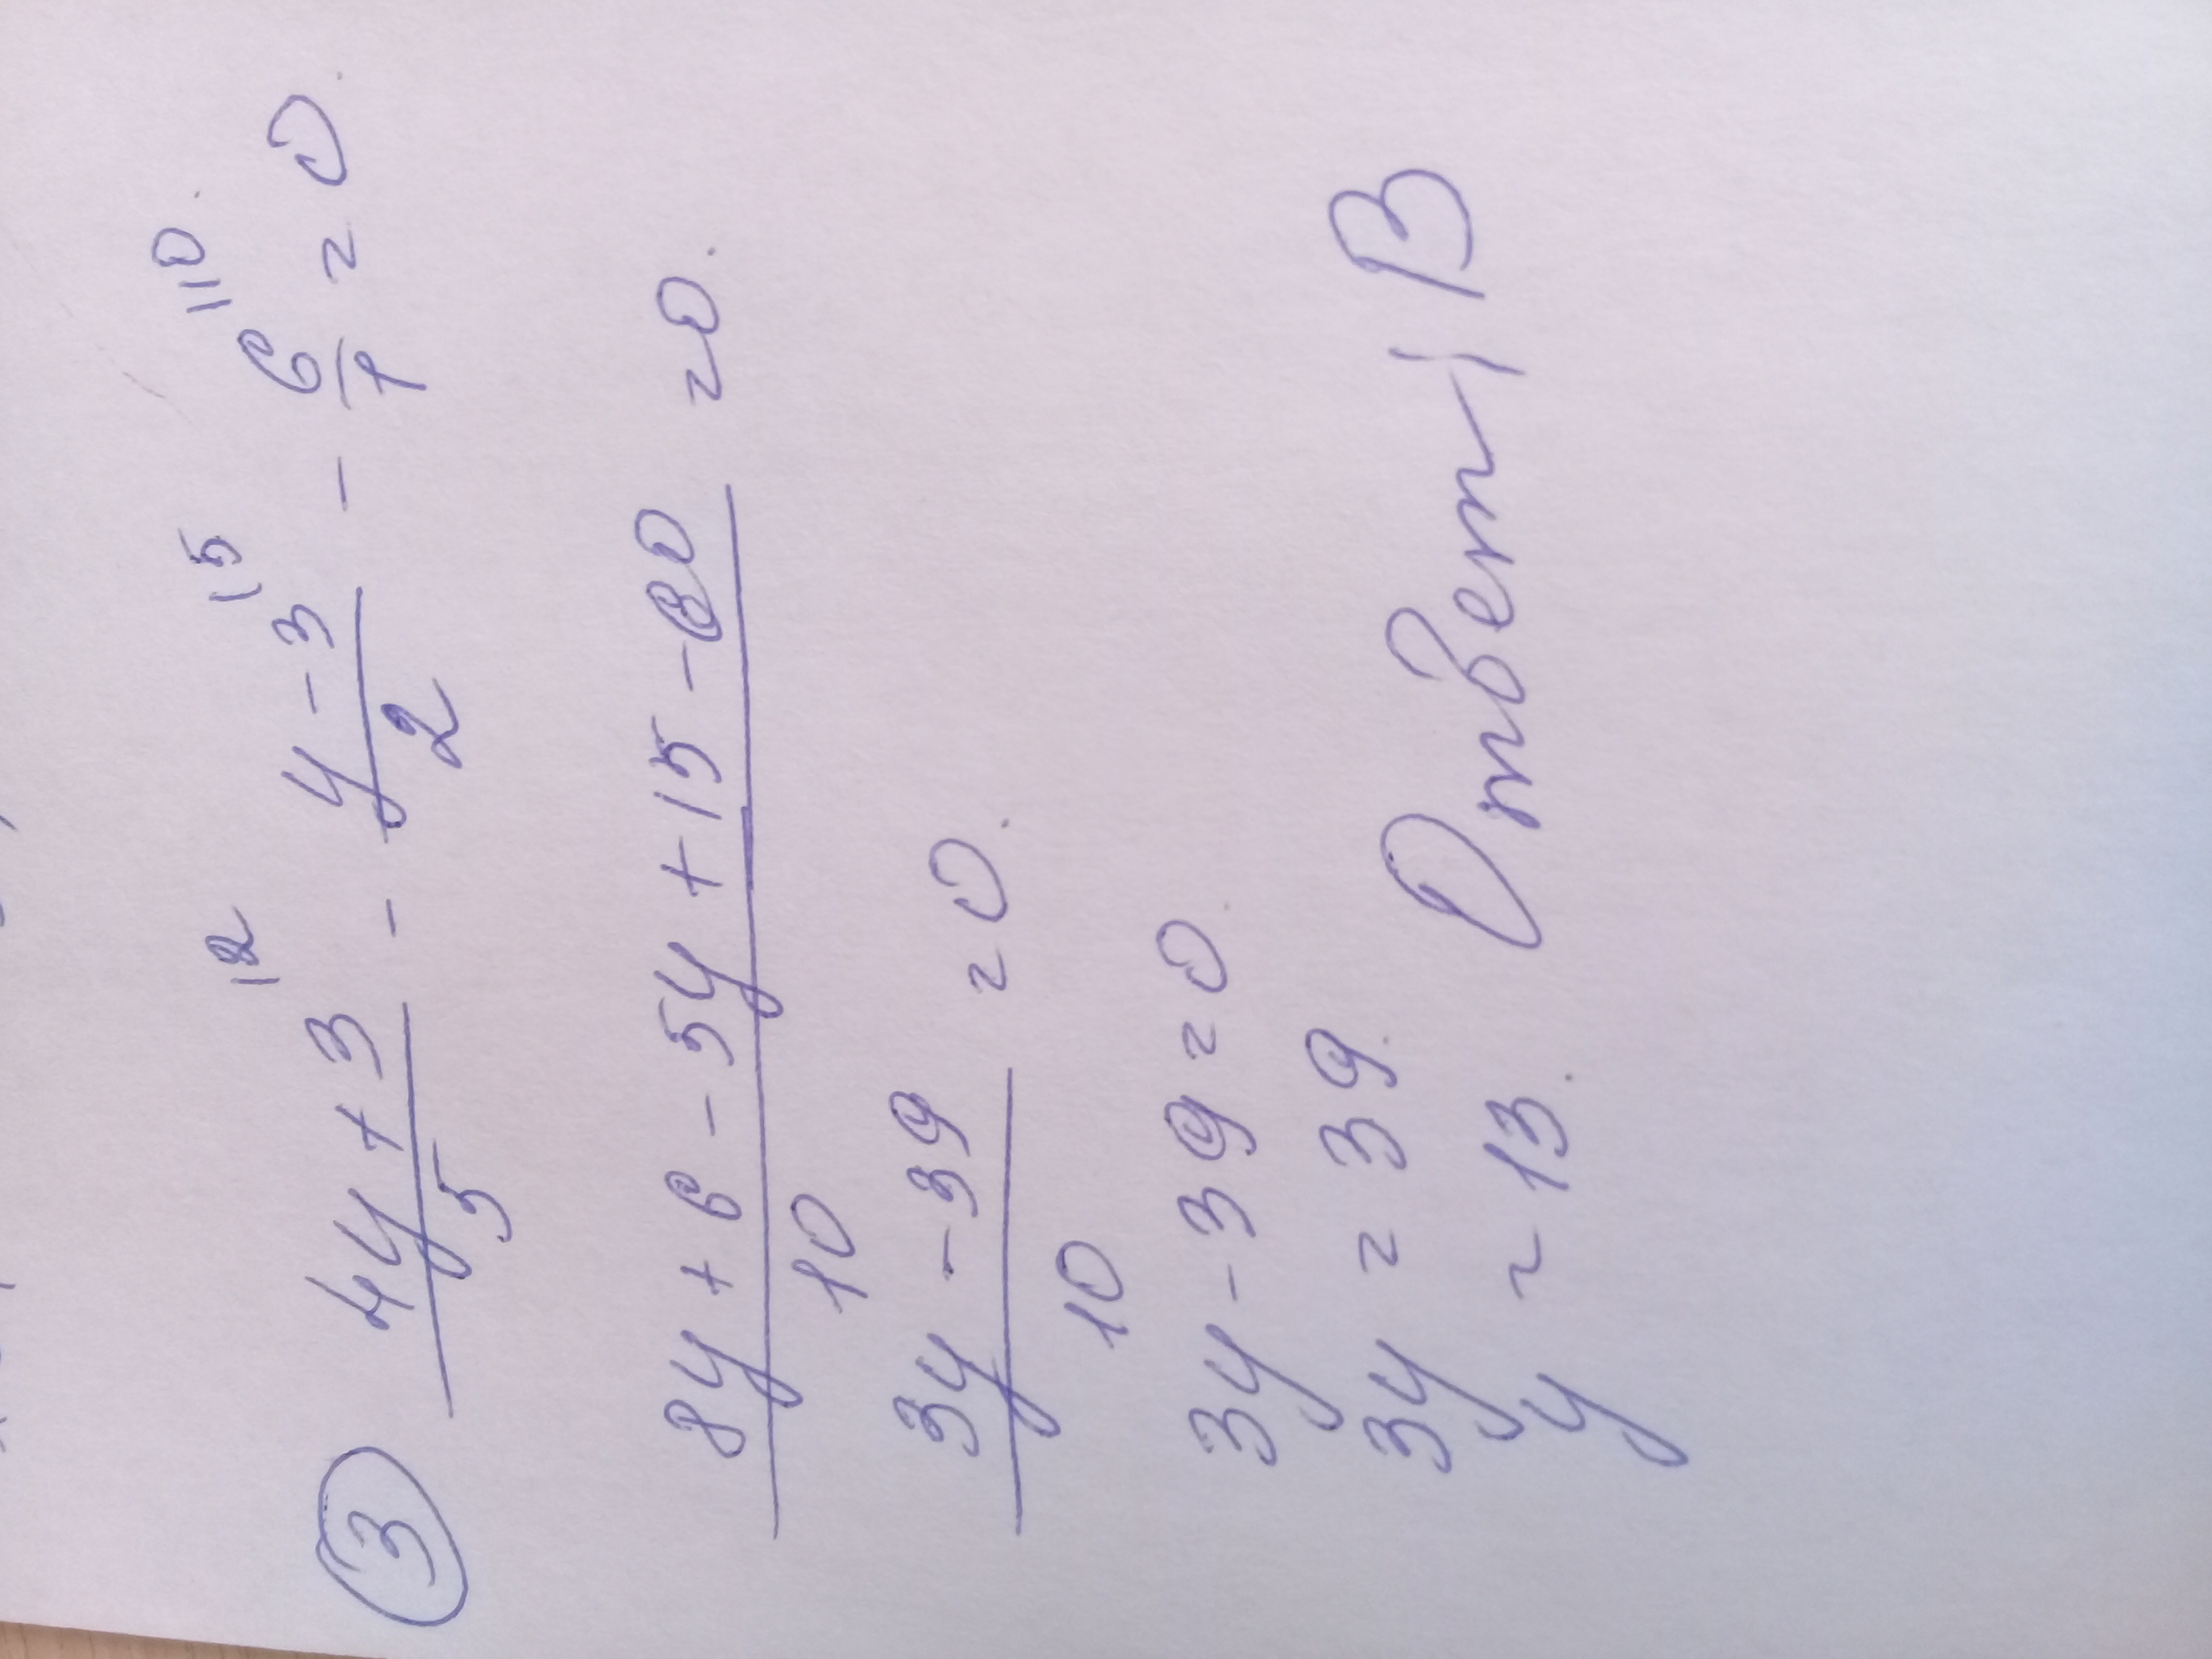 ③ (4y + 3)/5 |2 - (y - 3)/2 |5 - 6/1 |10 = 0.
(8y + 6 - 5y + 15 - 60)/10 = 0.
(3y - 39)/10 = 0.
3y - 39 = 0.
3y = 39.
y = 13. Ответ; 13